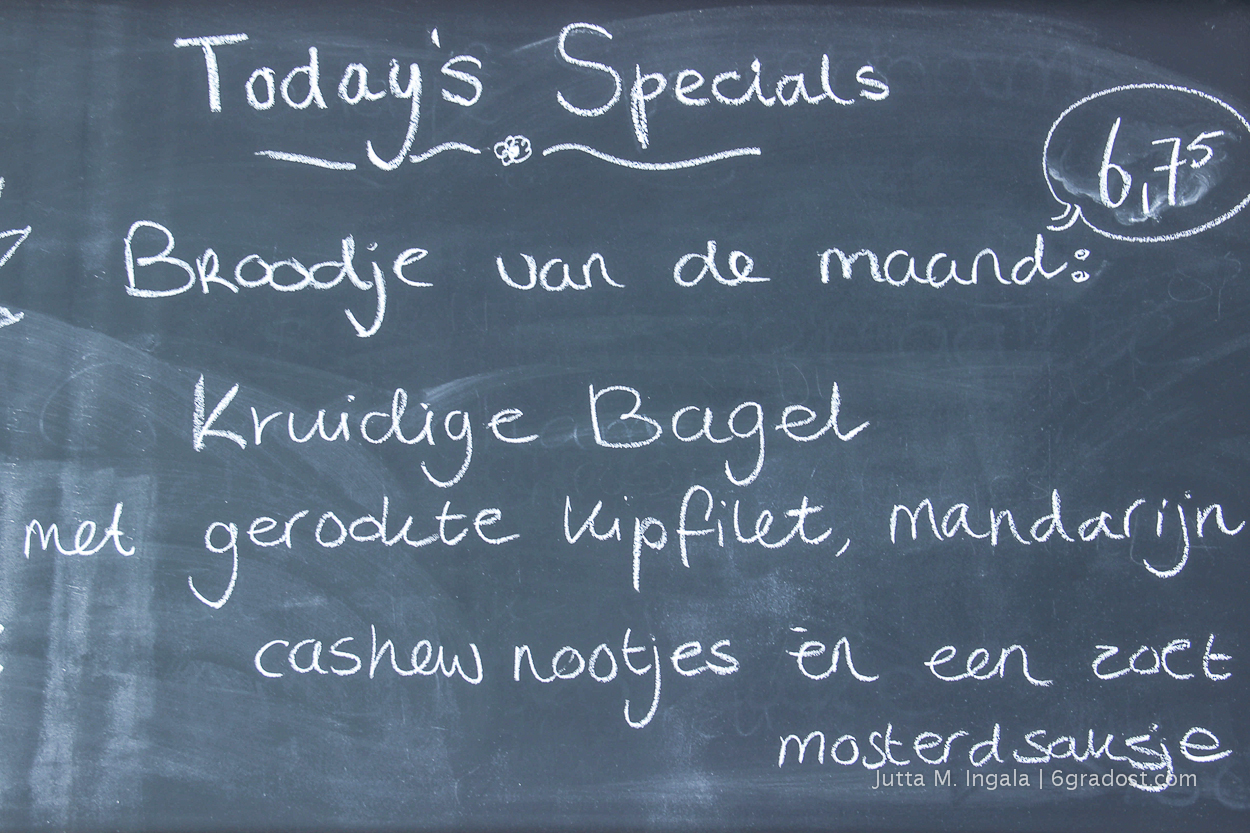 Today's Specials
6,75
Broodje van de maand:
Kruidige Bagel
met gerookte kipfilet, mandarijn
cashew nootjes èn een zoet
mosterdsausje
Jutta M. Ingala | 6gradost.com